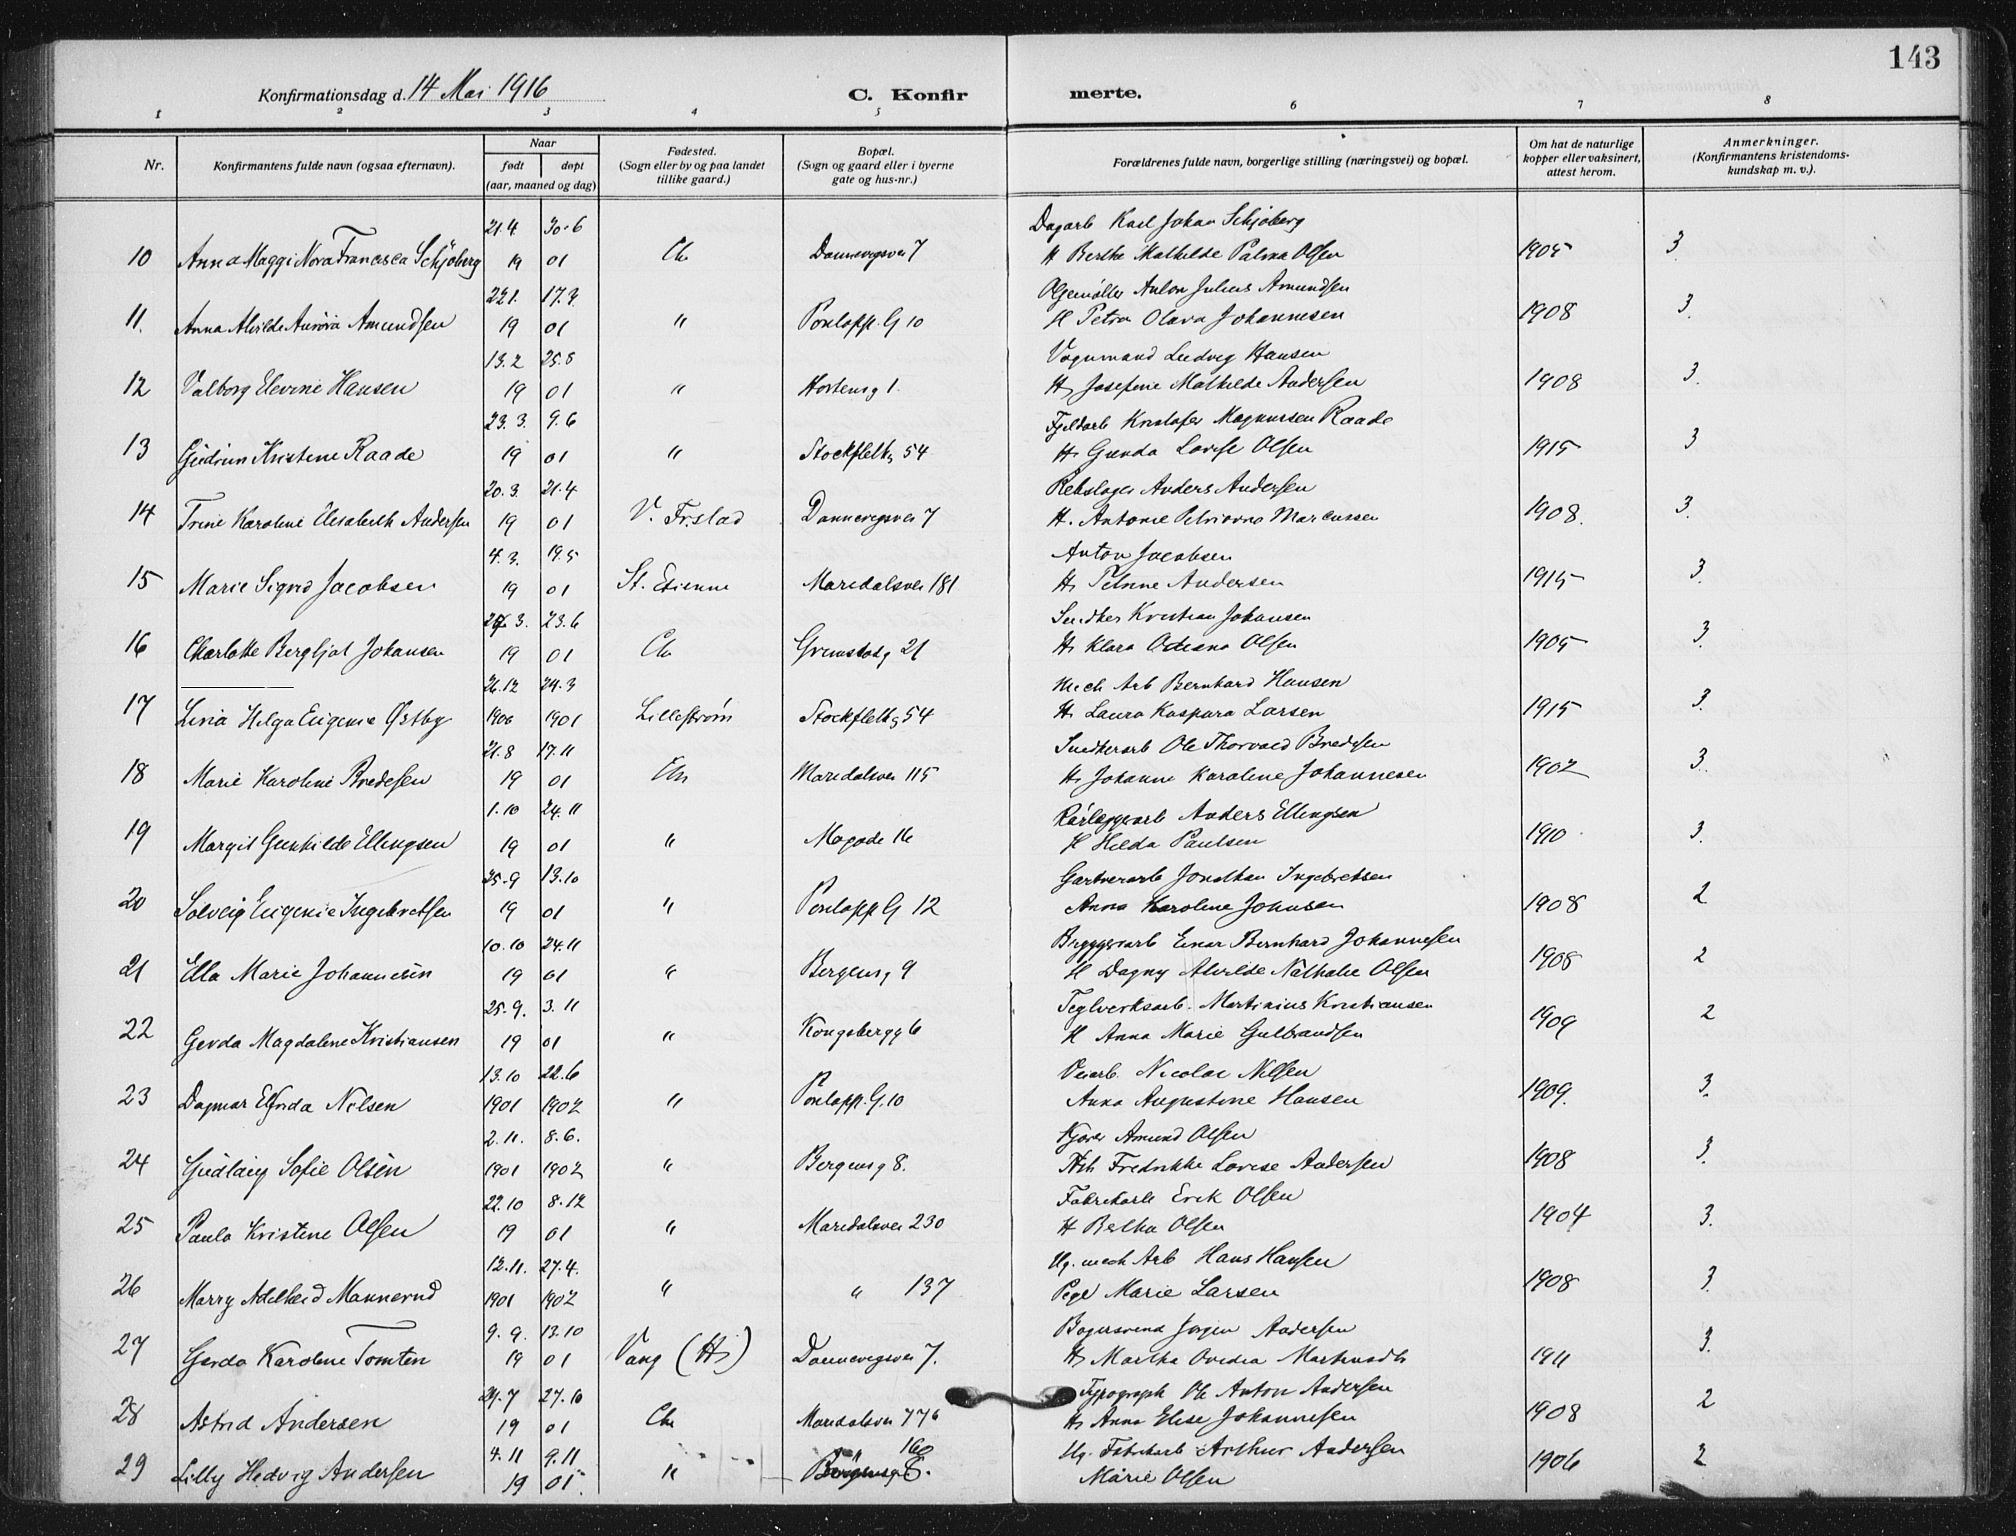 143
Konfirmationsdag d. 14 Mai 1916
C. Konfirmerte.
1 2 3 4 5 6 7 8
Nr. Konfirmantens fulde navn (ogsaa efternavn). Naar født døpt (aar, maaned og dag) Fødested. (Sogn eller by og paa landet tillike gaard.) Bopæl. (Sogn og gaard eller i byerne gate og hus-nr.) Forældrenes fulde navn, borgerlige stilling (næringsvei) og bopæl. Om hat de naturlige kopper eller vaksinert, attest herom. Anmerkninger. (Konfirmantens kristendoms-kundskap m. v.).
21.4 30.6 Dagarb Karl Johan Schjøberg
10 Anna Maggi Nora Francisca Schjøberg 19 01 Ch Dannevigsvei 7 H Berthe Mathilde Palma Olsen 1905 3
22.1. 17.3 Anton Julius Amundsen
11. Anna Alvilde Aurora Amundsen 19 01 " G 10 H Petra Olava Johannesen 1908 3.
13.2 25.8 Vognmand Ludvig Hansen
12 Valborg Elevine Hansen 19 01 " Hortensg 1. H Josefine Mathilde Andersen 1908 3.
23.3. 9.6 Fjeldarb Kristofer Magnussen Raade
13 Gudrun Kristine Raade 19 01 " Stockflethg 54 H Gunda Lovise Olsen 1915 3
20.3. 21.4 Rebslager Anders Andersen
14 Trine Karoline Elisabeth Andersen 19 01 V. Fr.stad Dannevigsvei 7 H. Antonie Marcussen 1908. 3.
4.3. 19.5 Anton Jacobsen
15 Marie Sigrid Jacobsen 19 01 St. Etienne Maridalsvei 181 H Petrine Andersen 1915 3.
3. 23.6 Snedker Kristian Johansen
16 Charlotte Bergljot Johansen 19 01 Ch Grimstadg 21 H Klara Olsen 1905 3.
26.12 24.3 Mech Arb Bernhard Hansen
17 Livia Helga Eugenie Østby 1900 1901 Lillestrøm Stockfletg 54 H Laura Kaspara Larsen 1915 3.
21.8 17.11 Snedkerarb Ole Thorvald Bredesen
18 Marie Karoline Bredesen 19 01 Ch Maridalsvei 115 H Johanne Karoline Johannesen 1902 3.
1.10 24.11 Rørlæggerarb Anders Ellingsen
19 Margit Gunhilde Ellingsen 19 01 " 16 H Hilda Paulsen 1910 3.
25.9 13.10 Gartnerarb Jonathan Ingebretsen
20 Solveig Eugenie Ingebretsen 19 01 " G 12 Anna Karoline Johnsen 1908 2
10.10 24.11 Bryggeriarb Einar Bernhard Johannesen
21 Ella Marie Johannesen 19 01 " Bergensg 9 H Dagny Alvilde Nathalie Olsen 1908 2
25.9. 3.11 Teglverksarb. Martinius Kristiansen
22 Gerda Magdalene Kristiansen 19 01 " Kongsbergg 6 H Anna Marie Gulbrandsen 1909 2
13.10 22.6 Veiarb. Nicolai Nilsen
23 Dagmar Elfrida Nilsen 1901 1902 " G. 10 Anna Augustine Hansen 1909. 3.
2.11. 8.6. Kjører Amund Olsen
24 Gudlaug Sofie Olsen 1901 1902 " Bergensg 8. Fredrikke Lovise Andersen 1908 3.
22.10 8.12 Fabrikarb Erik Olsen
25 Paula Kristine Olsen 19 01 " Maridalsvei 230 H Bertha Olsen 1904 3.
12.11. 27.4. Ug. mech Arb Hans Hansen
26 Marry Adelheid Mannerud 1901 1902 " " 137 Pige Marie Larsen 1908 3.
9.9. 13.10 Bagersvend Jørgen Andersen
27 Gerda Karoline Tomten 19 01 Vang (H) Dannevigsvei 7. H Martha Ovedia 1911 3.
29.7 27.10 Typograph Ole Anton Andersen
28 Astrid Andersen 19 01 Ch Maridalsvei 776 H Anna Elise Johannesen 1908 2
4.11 9.11 160 Ug. Fabrikarb Arthur Andersen
29 Lilly Hedvig Andersen 19 01. " Bergensg 8. Marie Olsen 1906 2